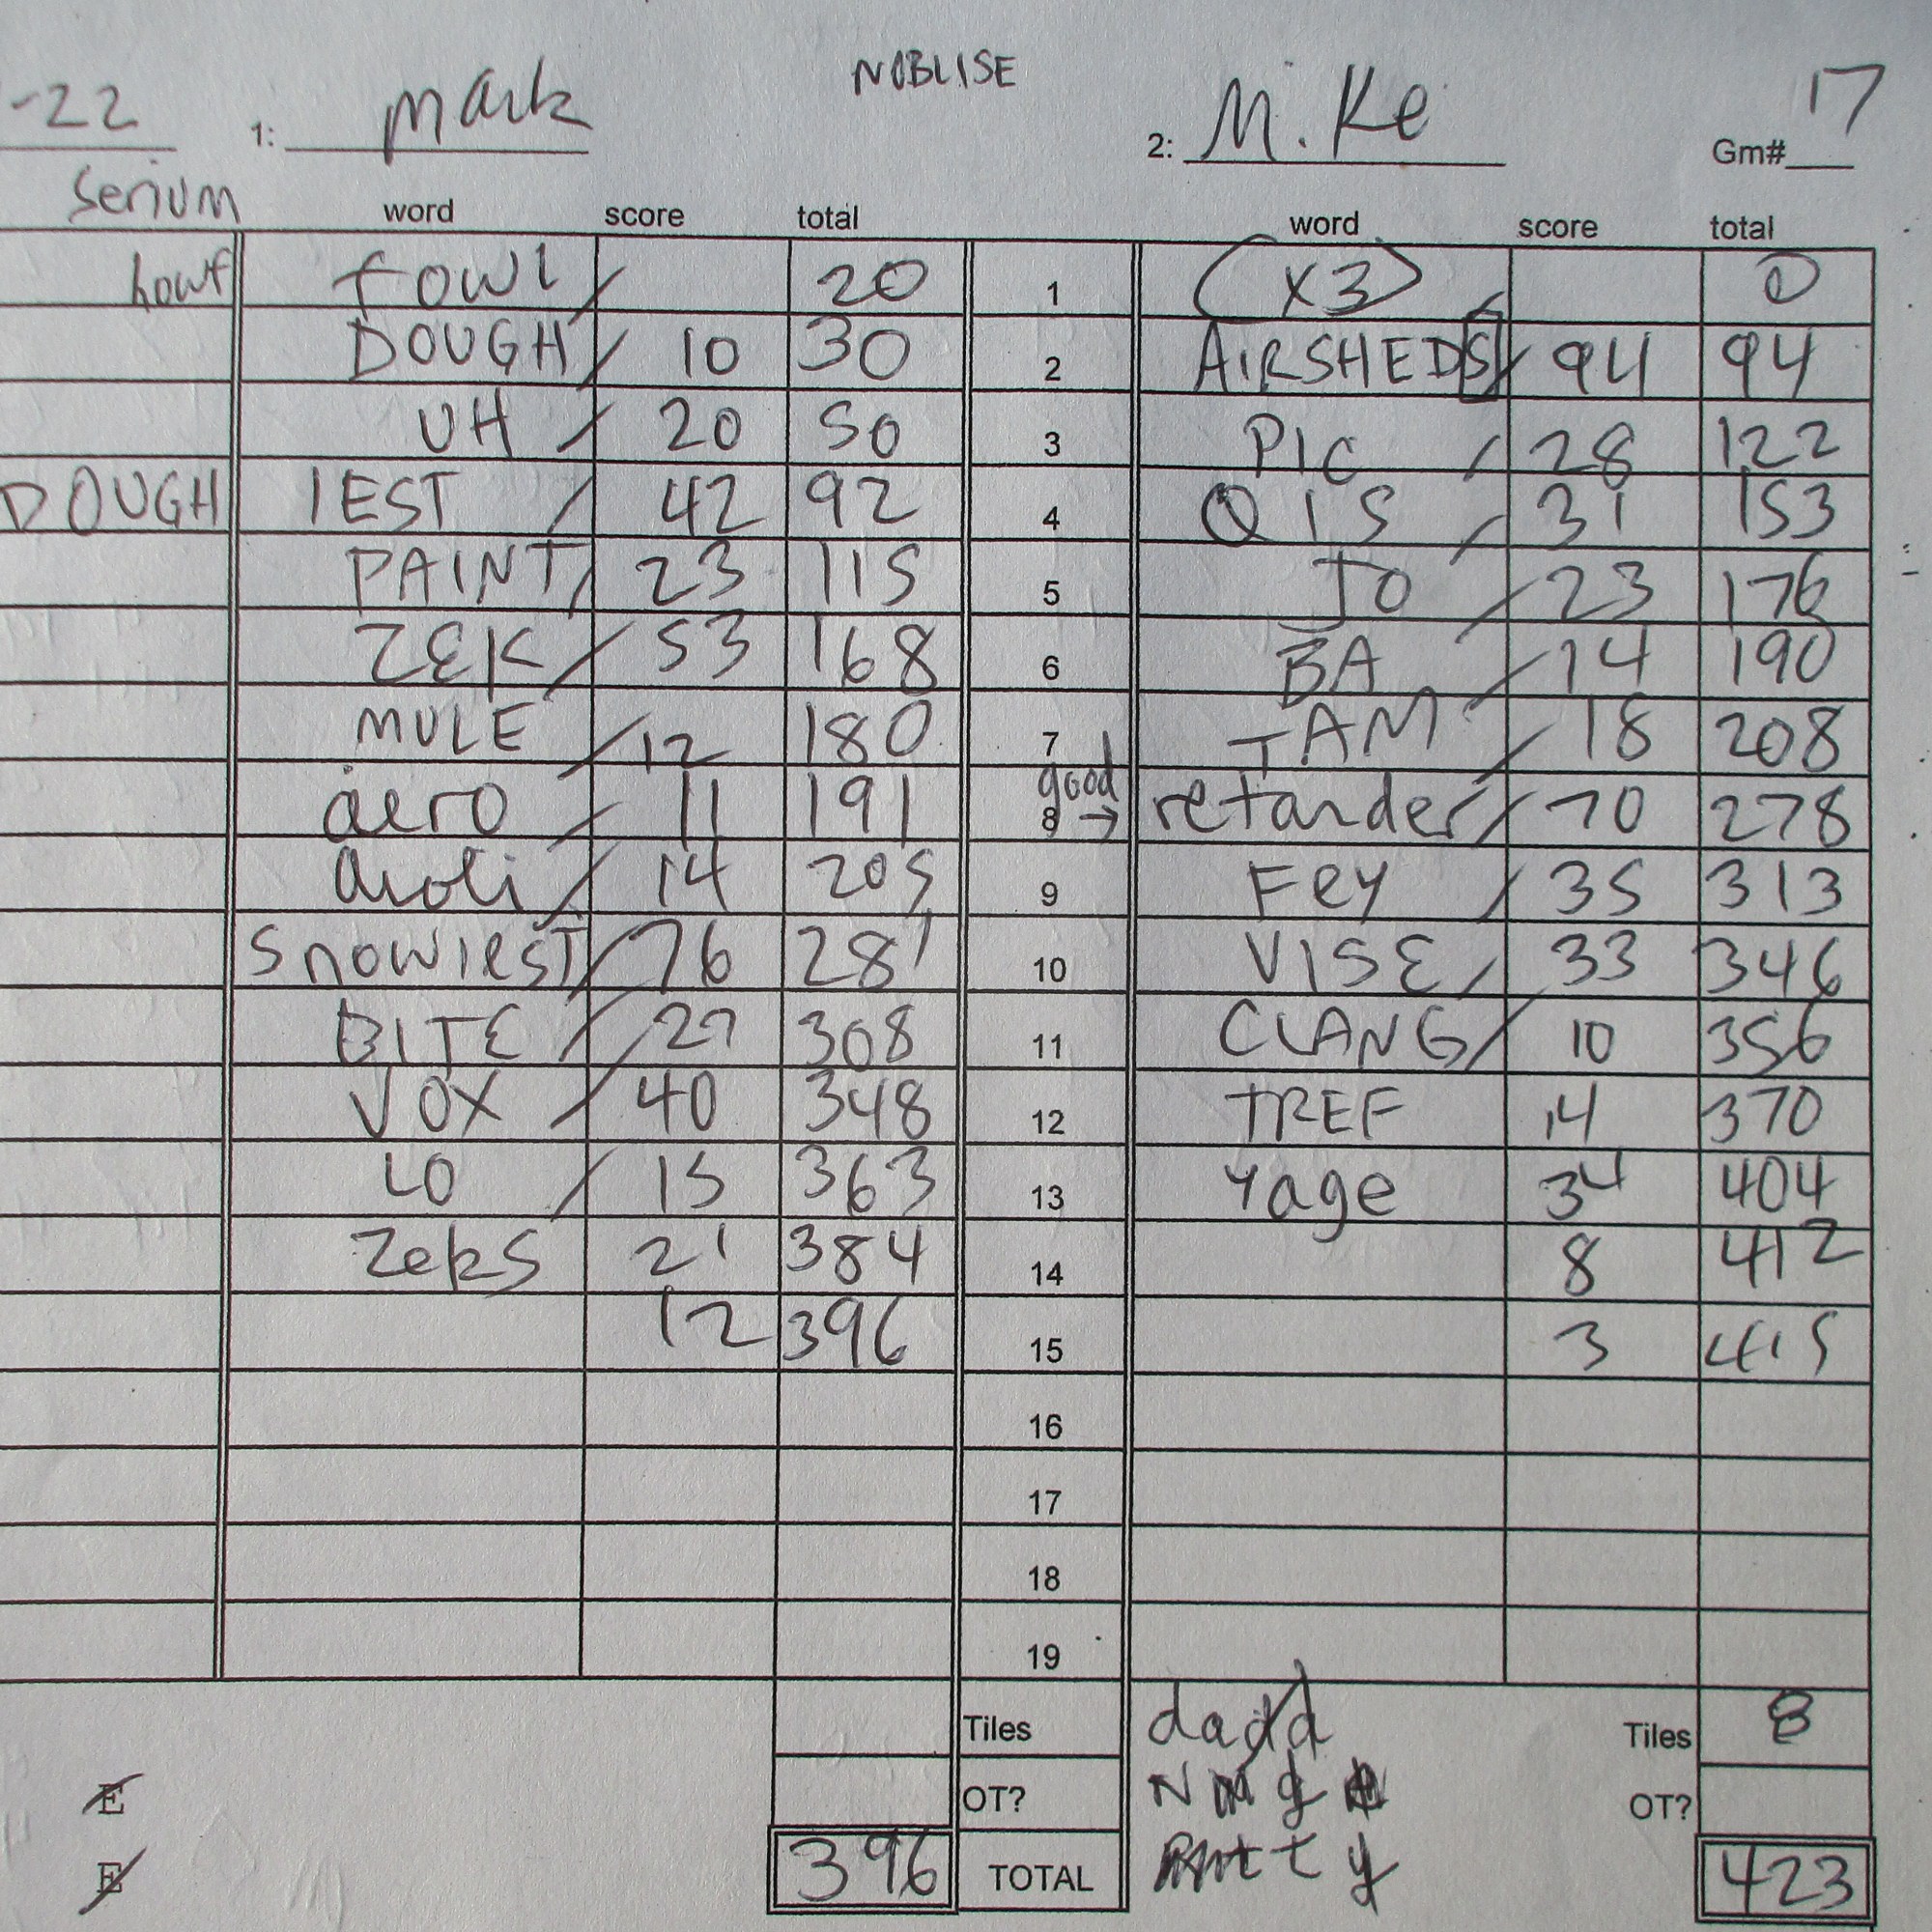 NOBLISE
-22 1: Mark 2: M.Ke Gm# 17
Serium word score total word score total
howf fowl 20 1 (x3) 0
DOUGH 10 30 2 AIRSHEDS 94 94
UH 20 50 3 PIC 28 122
DOUGH IEST 42 92 4 QIS 31 153
PAINT 23 115 5 JO 23 176
ZEK 53 168 6 BA 14 190
MULE 12 180 7 TAM 18 208
aero 11 191 good 8 → retarder 70 278
aioli 14 205 9 Fey 35 313
snowiest 76 281 10 VISE 33 346
BITE 27 308 11 CLANG 10 356
VOX 40 348 12 TREF 14 370
LO 15 363 13 Yage 34 404
Zeks 21 384 14 8 412
12 396 15 3 415
16
17
18
19
Tiles dadd Tiles 8
E OT? OT?
E 396 TOTAL 423